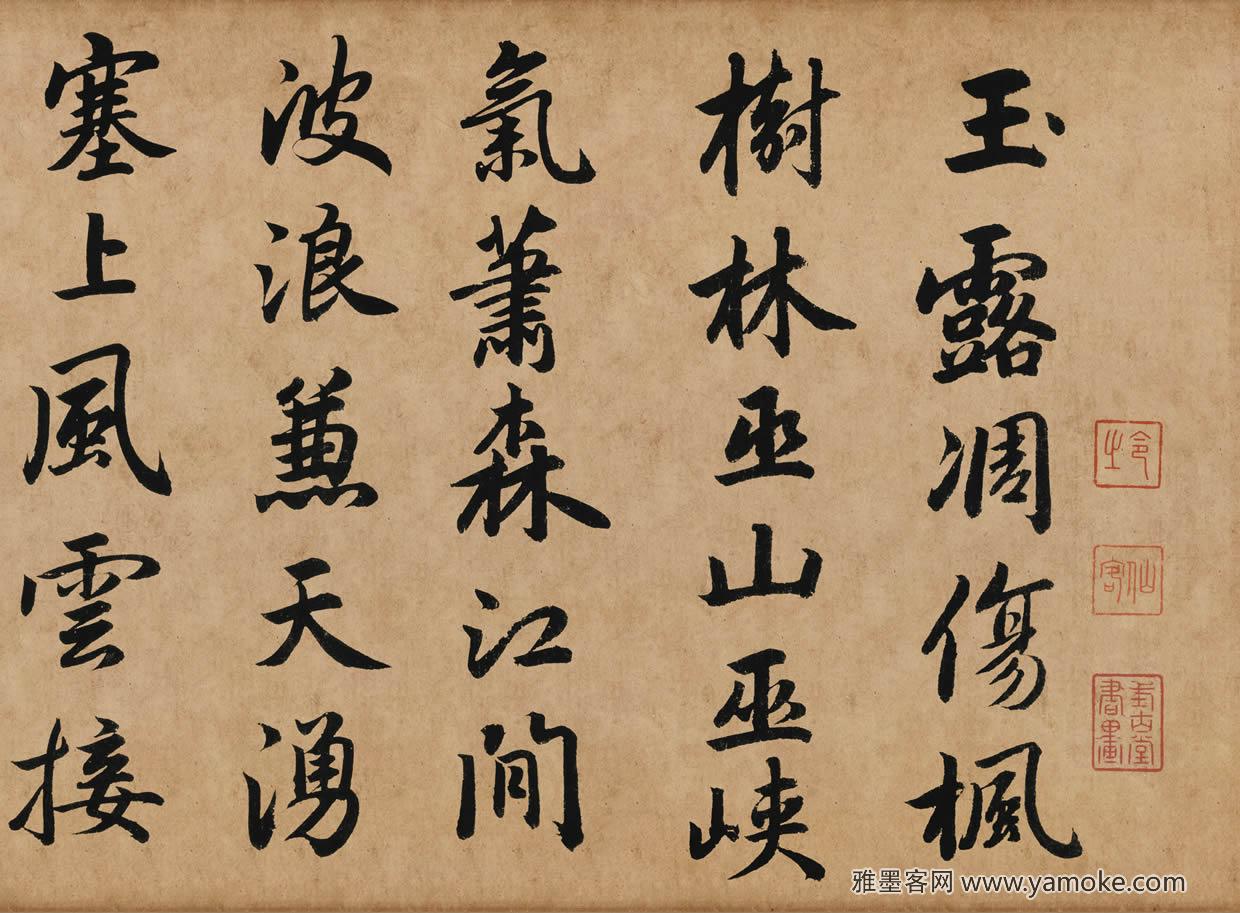 玉露凋傷楓
樹林巫山巫峽
氣蕭森江間
波浪蒹天湧
塞上風雲接
仙客
雅墨客网 www.yamoke.com